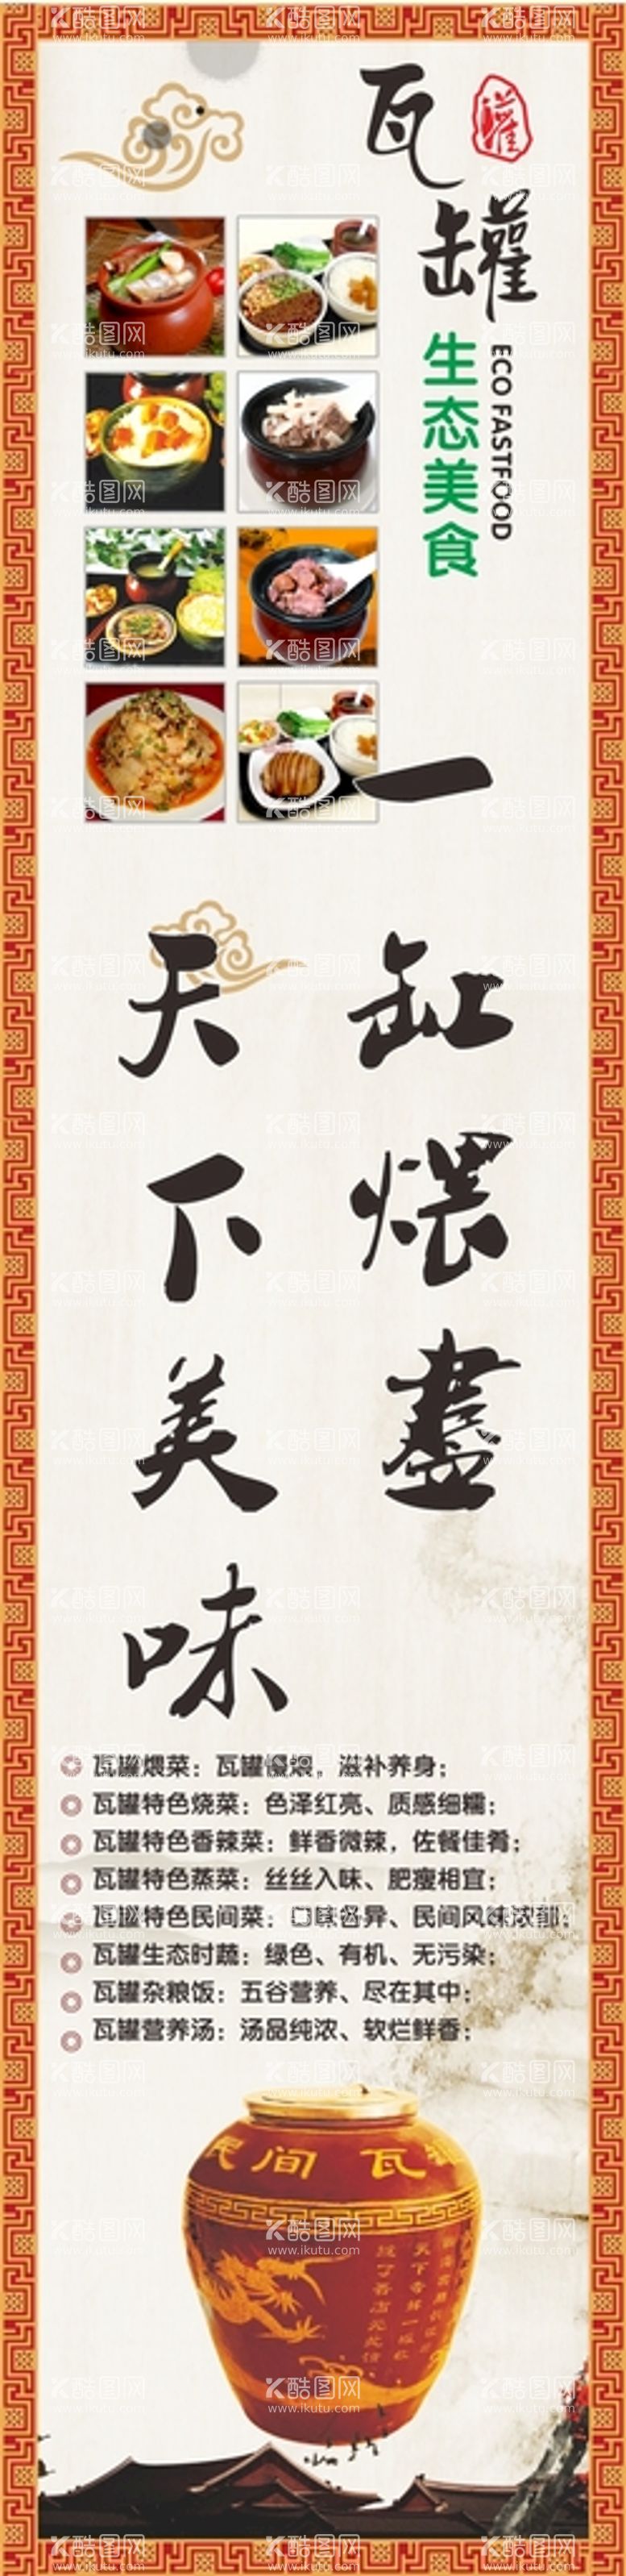 瓦罐
罐
生态美食
ECO FASTFOOD
一缸煨盡
天下美味
瓦罐煨菜：瓦罐慢煨，滋补养身；
瓦罐特色烧菜：色泽红亮、质感细糯；
瓦罐特色香辣菜：鲜香微辣，佐餐佳肴；
瓦罐特色蒸菜：丝丝入味、肥瘦相宜；
瓦罐特色民间菜：异、民间风味
瓦罐生态时蔬：绿色、有机、无污染；
瓦罐杂粮饭：五谷营养、尽在其中；
瓦罐营养汤：汤品纯浓、软烂鲜香；
民间瓦罐
酷图网
www.ikutu.com